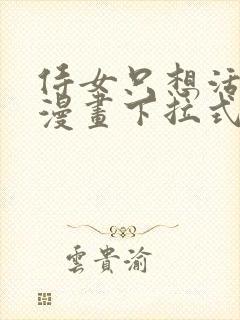 侍女只想活
漫畫下拉式
雲貴渝